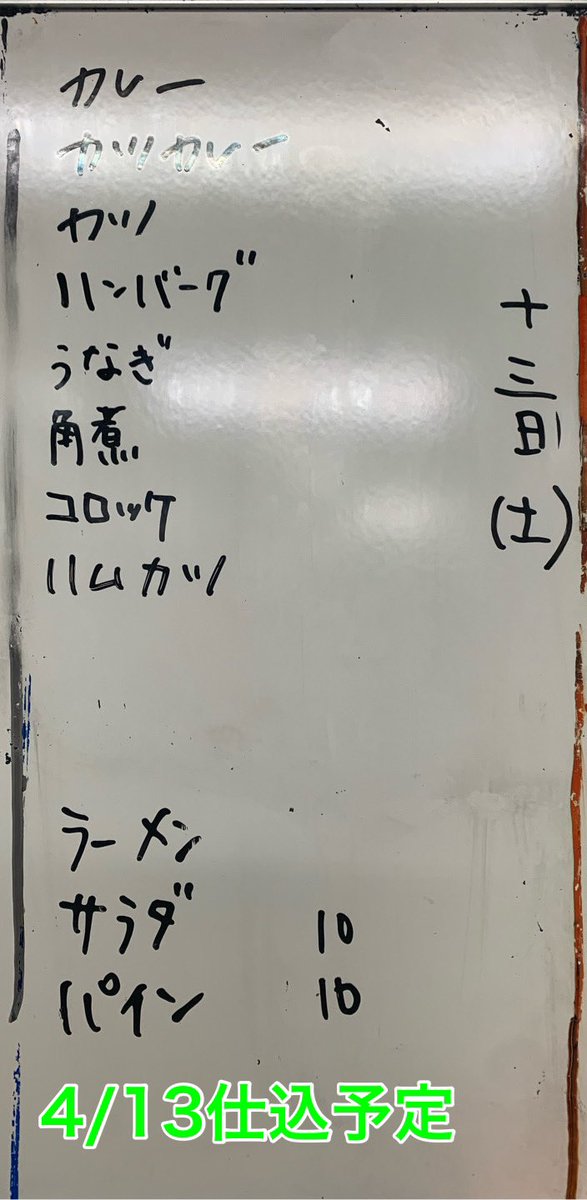 カレー
カツカレー
カツ
ハンバーグ
うなぎ
角煮
コロッケ
ハムカツ
十三日(土)
ラーメン
サラダ 10
パイン 10
4/13仕込予定